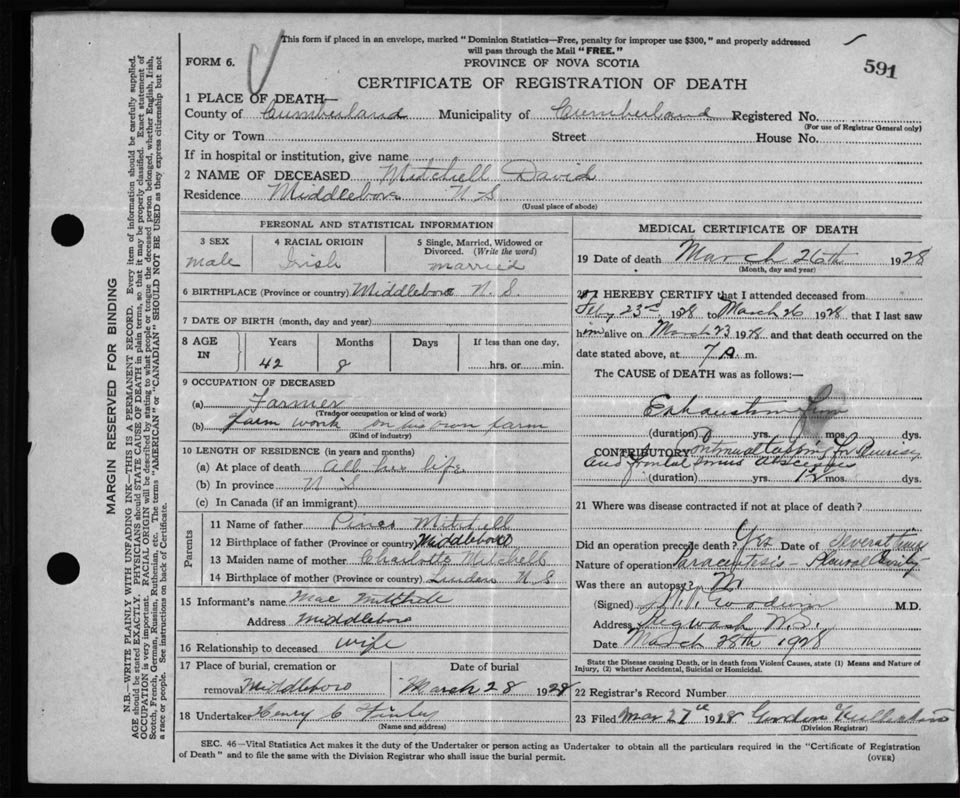 This form if placed in an envelope, marked "Dominion Statistics—Free, penalty for improper use $300," and properly addressed
will pass through the Mail "FREE."
591
FORM 6.
PROVINCE OF NOVA SCOTIA
CERTIFICATE OF REGISTRATION OF DEATH
1 PLACE OF DEATH—
County of Cumberland Municipality of Cumberland Registered No.
(For use of Registrar General only)
City or Town Street House No.
If in hospital or institution, give name
2 NAME OF DECEASED Mitchell David
Residence Middleboro N S
(Usual place of abode)
PERSONAL AND STATISTICAL INFORMATION
3 SEX 4 RACIAL ORIGIN 5 Single, Married, Widowed or Divorced. (Write the word)
male Irish married
6 BIRTHPLACE (Province or country) Middleboro N. S.
7 DATE OF BIRTH (month, day and year)
8 AGE IN Years Months Days If less than one day,
42 8 hrs. or min.
9 OCCUPATION OF DECEASED
(a) Farmer
(Trade, occupation or kind of work)
(b) farm work on his own farm
(Kind of industry)
10 LENGTH OF RESIDENCE (in years and months)
(a) At place of death all his life
(b) In province N S
(c) In Canada (if an immigrant)
Parents
11 Name of father Mitchell
12 Birthplace of father (Province or country) Middleboro
13 Maiden name of mother Charlotte Mitchell
14 Birthplace of mother (Province or country) Linden N S
15 Informant's name Mae Mitchell
Address Middleboro
16 Relationship to deceased wife
17 Place of burial, cremation or Date of burial
removal Middleboro March 28 1928
18 Undertaker Henry C
(Name and address)
MEDICAL CERTIFICATE OF DEATH
19 Date of death March 26th 1928
(Month, day and year)
20 I HEREBY CERTIFY that I attended deceased from
Feby 23rd, 1928 to March 26 1928 that I last saw
him alive on March 23 1928 and that death occurred on the
date stated above, at 7 A. m.
The CAUSE of DEATH was as follows:—
Exhaustion from
(duration) yrs. mos. dys.
CONTRIBUTORY Continual tapping for Pleurisy
and frontal sinus abscesses
(duration) yrs. 12 mos. dys.
21 Where was disease contracted if not at place of death?
Did an operation precede death? Yes Date of Several times
Nature of operation Paracentesis - Pleural Cavity
Was there an autopsy?
(Signed) M.D.
Address Pugwash N.S.
Date March 28th 1928
State the Disease causing Death, or in death from Violent Causes, state (1) Means and Nature of
Injury, (2) whether Accidental, Suicidal or Homicidal.
22 Registrar's Record Number
23 Filed Mar 27th 1928 Gordon
(Division Registrar)
SEC. 46—Vital Statistics Act makes it duty of the Undertaker or person acting as Undertaker to obtain all the particulars required in the "Certificate of Registration
of Death" and to file the same with the Division Registrar who shall issue the burial permit.
(OVER)
MARGIN RESERVED FOR BINDING
N.B.—WRITE PLAINLY WITH UNFADING INK—THIS IS A PERMANENT RECORD. Every item of information should be carefully supplied.
AGE should be stated EXACTLY. PHYSICIANS should STATE CAUSE OF DEATH in plain terms, so that it may be properly classified. Exact statement of
OCCUPATION is very important. RACIAL ORIGIN will be described by stating to what people or tongue the deceased person belonged, whether English, Irish,
Scotch, French, German, Russian, Ruthenian, etc. The terms "AMERICAN" or "CANADIAN" SHOULD NOT BE USED as they express citizenship but not
a race or people. See instructions on back of Certificate.